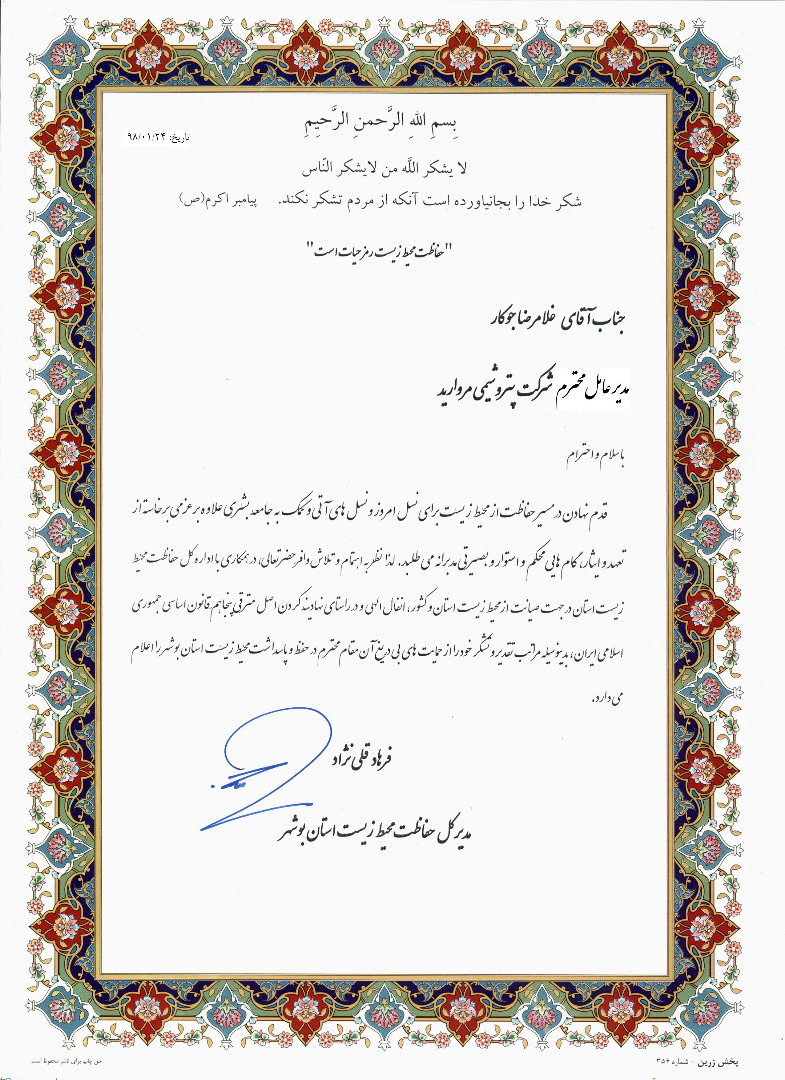 بِسمِ اللهِ الرَّحمنِ الرَّحیِمِ
تاریخ: ۹۸/۰۱/۲۴
لا یشکر اللَّه من لایشکر النّاس
شکر خدا را بجانیاورده است آنکه از مردم تشکر نکند. پیامبر اکرم(ص)
"حفاظت محیط زیست رمز حیات است"
جناب آقای غلامرضا جوکار
مدیرعامل محترم شرکت پتروشیمی مروارید
باسلام و احترام
قدم نهادن در مسیر حفاظت از محیط زیست برای نسل امروز و نسل های آتی و کمک به جامعه بشری علاوه بر عزمی برخاسته از
تعهد و ایثار، گام هایی محکم و استوار و بصیرتی مدبرانه می طلبد. لذا نظر به اهتمام و تلاش وافر حضرتعالی، در همکاری با اداره کل حفاظت محیط
زیست استان در جهت صیانت از محیط زیست استان و کشور، انفال الهی و در راستای نهادینه کردن اصل مترقی پنجاهم قانون اساسی جمهوری
اسلامی ایران، بدینوسیله مراتب تقدیر و تشکر خود را از حمایت های بی دریغ آن مقام محترم در حفظ و پاسداشت محیط زیست استان بوشهر را اعلام
می دارد.
فرهاد قلی نژاد
مدیرکل حفاظت محیط زیست استان بوشهر
پخش زرین - شماره ۳۵۴
حق چاپ برای ناشر محفوظ است.